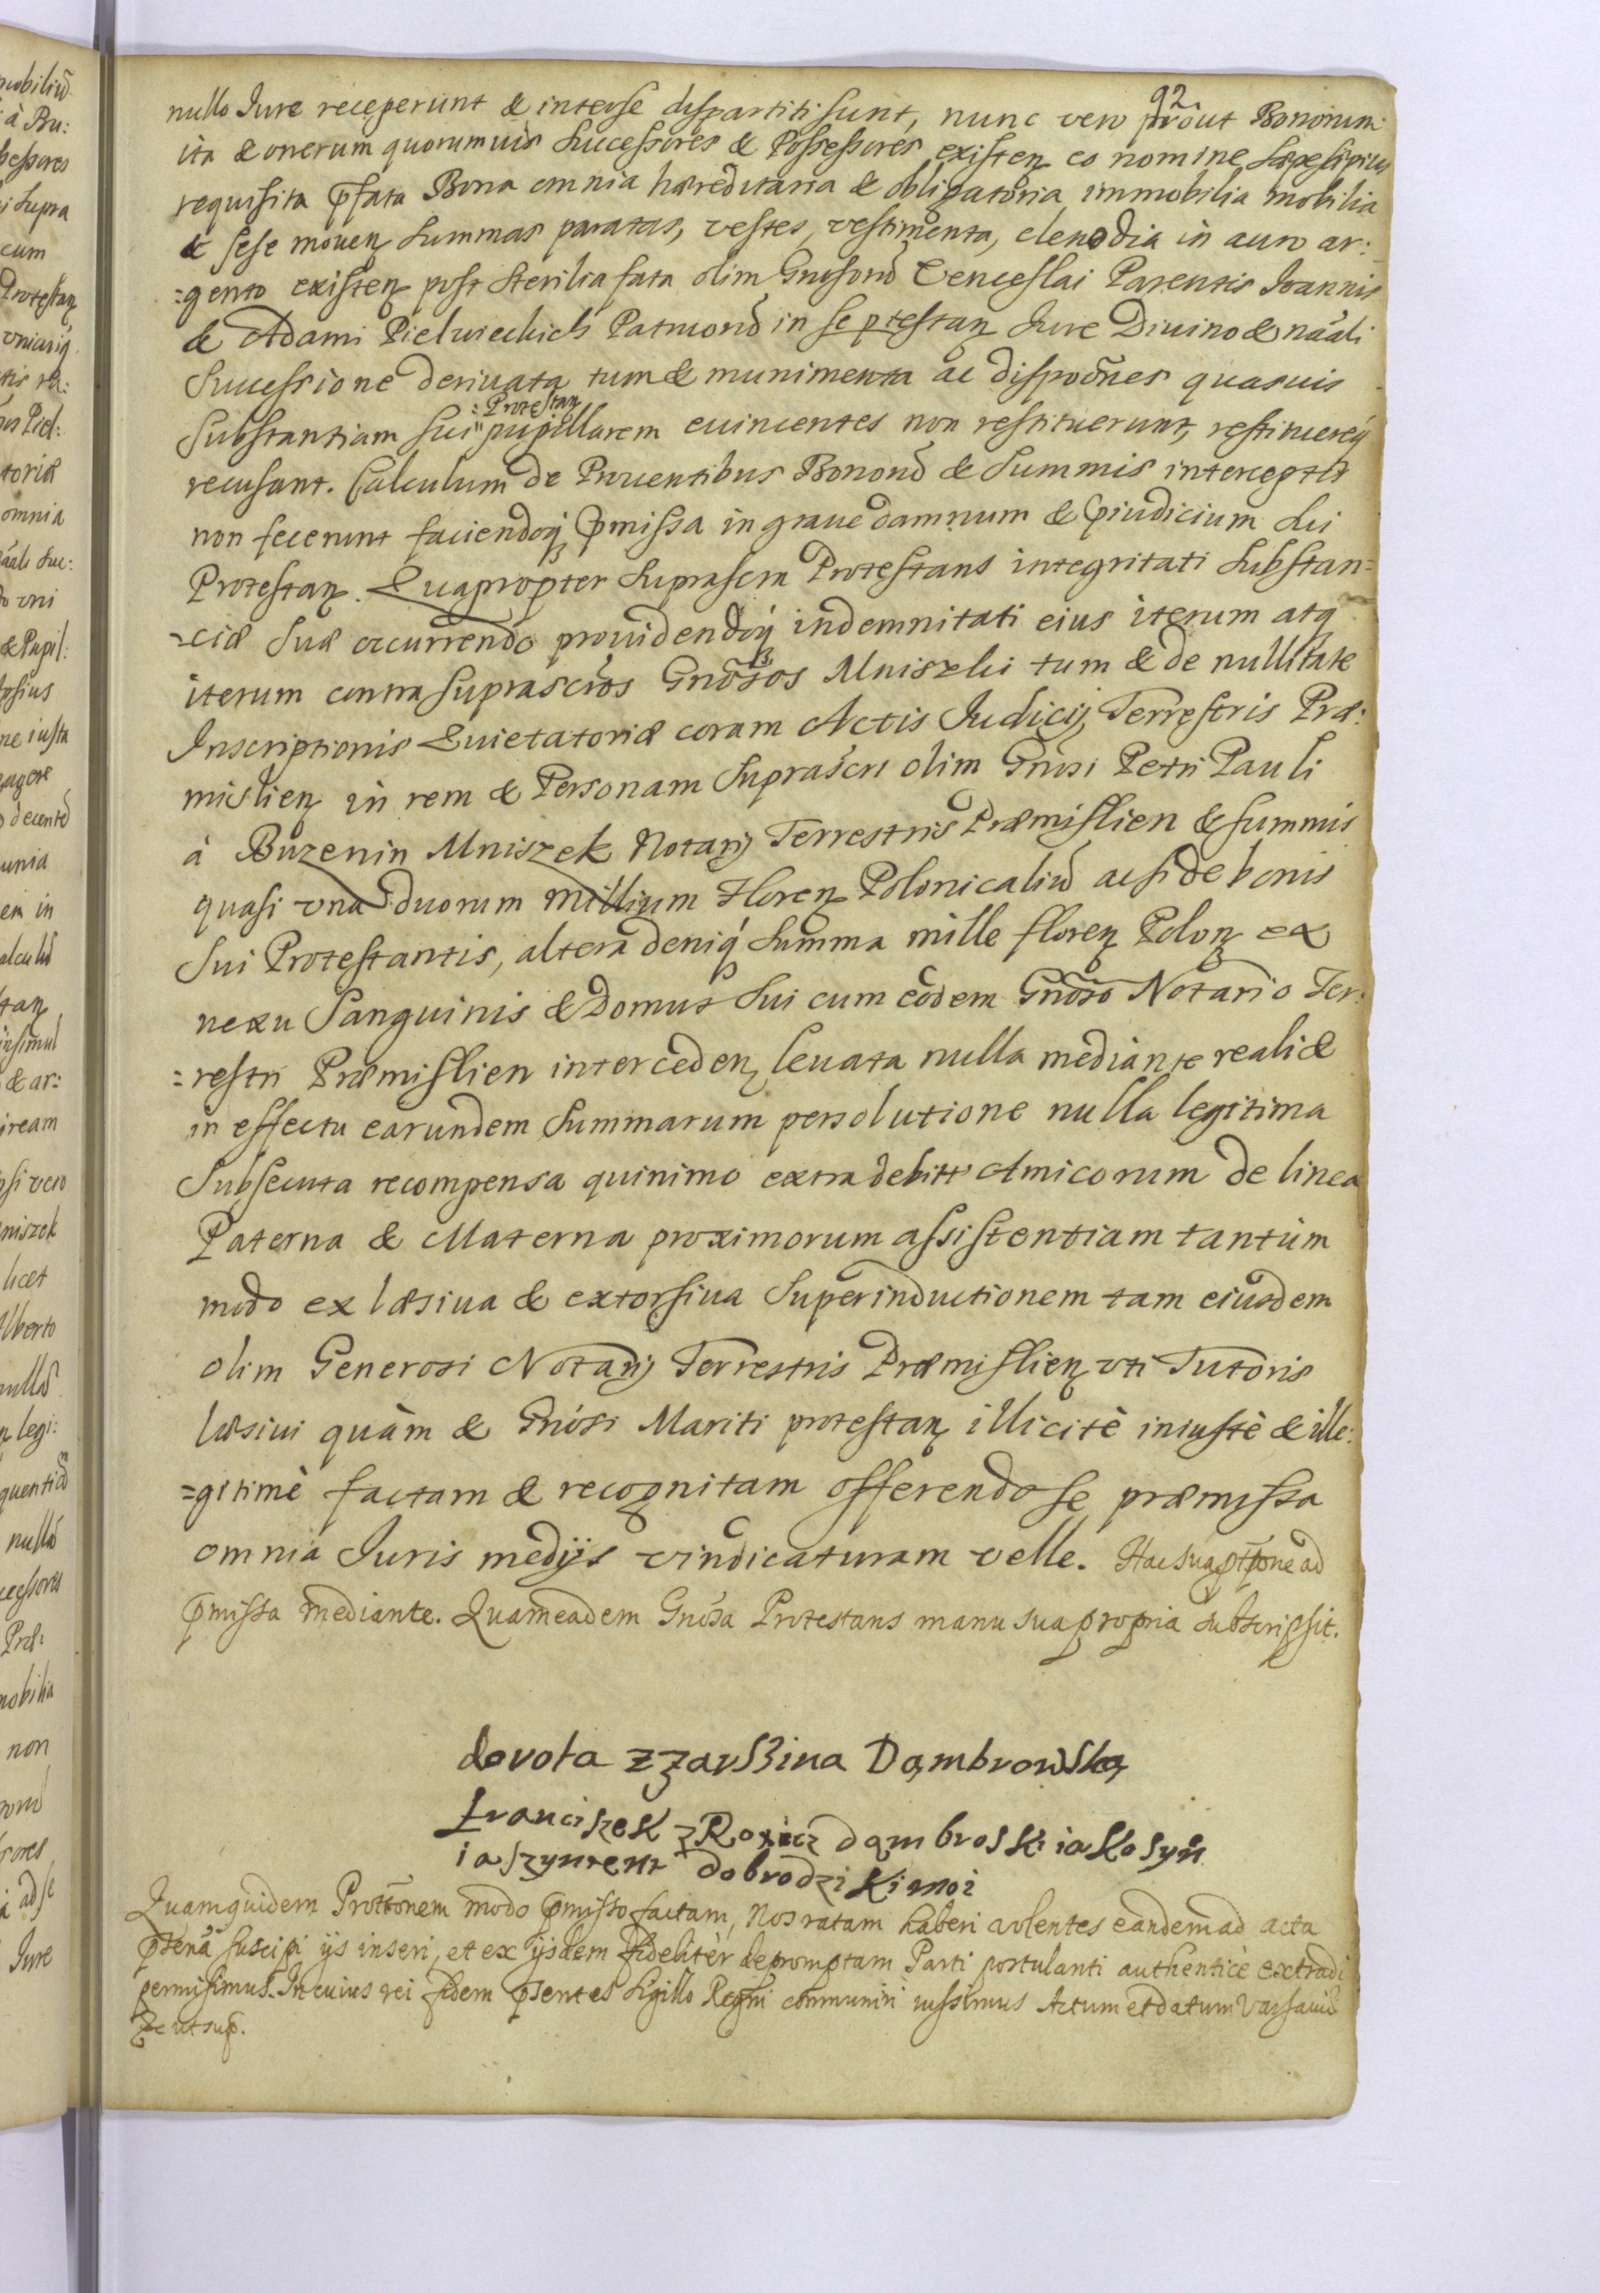 92
nullo Jure receperunt & interse dispartiti sunt, nunc vero prout Bonorum
ita & onerum quorumuis Successores & Possessores existen eo nomine sæpesepius
requisita pfata Bona omnia hæreditaria & obligatoria immobilia mobilia
& sese mouen Summas paratas, vestes, vestimenta, clenodia in auro ar:
=gento existen post sterilia fata olim Gnosorũ Venceslai Parentis Joannis
& Adami Pielwieckich Patruorũ in se ptestan Jure Diuino & nãali
Successione deriuata tum & munimenta ac dispoõnes quasuis
=Protestan
Substantiam sui" pupillarem euincentes non restituerunt, restituereq
recusant. Calculum de Prouentibus Bonorũ & Summis interceptis
non fecerunt faciendoq pmissa in graue damnum & piudicium Sui
Protestan. Quapropter Suprascra Protestans integritati Substan=
=ciæ Suæ occurrendo prouidendoq indemnitati eius iterum atq
iterum contra suprascros Gnosos Mniszki tum & de nullitate
Inscriptionis Quietatoriæ coram Actis Judicij Terrestris Præ:
mislien in rem & Personam Suprascri olim Gnosi Petri Pauli
à Buzenin Mniszek Notarij Terrestris Præmislien & summis
quasi vna duorum millium Floren Polonicaliũ acsi de bonis
Sui Protestantis, altera deniq Summa mille floren Polon ex
nexu Sanguinis & Domus Sui cum eodem Gnoso Notario Ter:
=restri Præmislien interceden leuata nulla mediante reali &
in effectu earundem Summarum persolutione nulla legitima
Subsecuta recompensa quinimo extra debitt Amicorum de linea
Paterna & Materna proximorum assistentiam tantùm
modo ex læsiua & extorsiua Superinductionem tam eiusdem
olim Generosi Notarij Terrestris Præmislien vti Tutoris
læsiui quàm & Gnosi Mariti protestan illicitè iniustè & ille:
=gitimè factam & recognitam offerendo se præmissa
omnia Juris medijs vindicaturam velle. Hac sua ptõne ad
pmissa mediante. Quam eadem Gnosa Protestans manu sua propria subscripsit.
dorota z zarszina Dąmbrowska
Franciszek z Roxicz dąmbroski iako syn
ia szynrent dobrodziki moi
Quamquidem Prottõnem modo pmisso factam, Nos ratam haberi volentes eandem ad acta
ptena suscipi ijs inseri, et ex ijsdem fidelitèr depromptam Parti postulanti authenticè extradi
permisimus. In cuius rei fidem psentes sigillo Regni communiri iussimus Actum et datum Varsauiæ
&c ut sup.